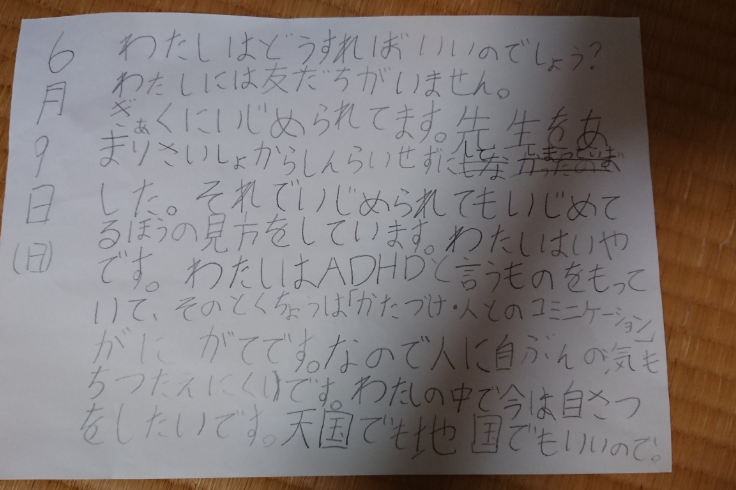 6月9日(日)
わたしはどうすればいいのでしょう?
わたしには友だちがいません。
ぎゃくにいじめられてます。先生をあ
まりさいしょからしんらいせず
した。それでいじめられてもいじめて
るほうの見方をしています。わたしはいや
です。わたしはADHDと言うものをもって
いて、そのとくちょうは「かたづけ・人とのコミニケーション」
がにがてです。なので人に自ぶんの気も
ちつたえにくいです。わたしの中で今は自さつ
をしたいです。天国でも地国でもいいので。